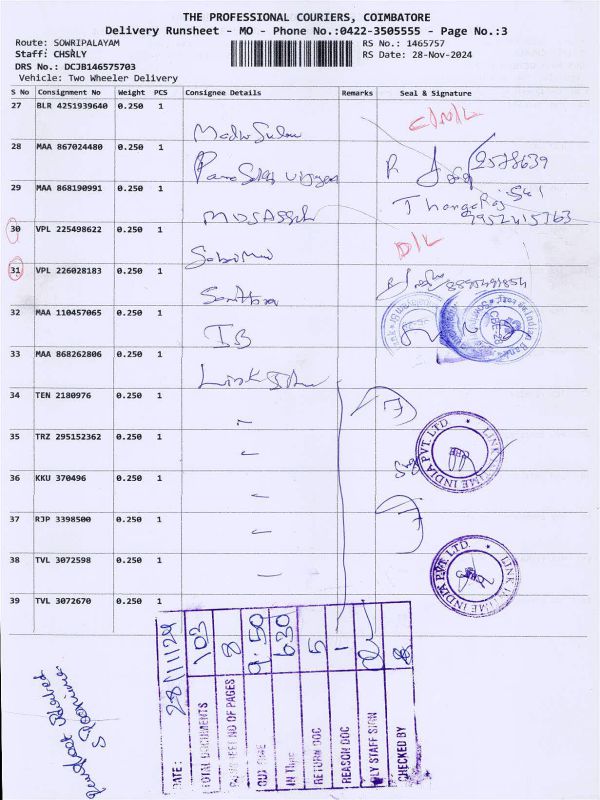 THE PROFESSIONAL COURIERS, COIMBATORE
Delivery Runsheet - MO - Phone No.:0422-3505555 - Page No.:3
Route: SOWRIPALAYAM
RS No.: 1465757
Staff: CHSRLY
RS Date: 28-Nov-2024
DRS No.: DCJB146575703
Vehicle: Two Wheeler Delivery
S No Consignment No Weight PCS Consignee Details Remarks Seal & Signature
27 BLR 4251939640 0.250 1
28 MAA 867024480 0.250 1
29 MAA 868190991 0.250 1
30 VPL 225498622 0.250 1
D/L
31 VPL 226028183 0.250 1
32 MAA 110457065 0.250 1
IB
33 MAA 868262806 0.250 1
34 TEN 2180976 0.250 1
35 TRZ 295152362 0.250 1
LINK INTIME INDIA PVT. LTD.
36 KKU 370496 0.250 1
37 RJP 3398500 0.250 1
38 TVL 3072598 0.250 1
LINK INTIME INDIA PVT. LTD.
39 TVL 3072670 0.250 1
DATE: 28/11/24
TOTAL DOCUMENTS 103
NO OF PAGES 8
OUT TIME 9.50
IN TIME 630
RETURN DOC 5
REASON DOC 1
STAFF SIGN
CHECKED BY